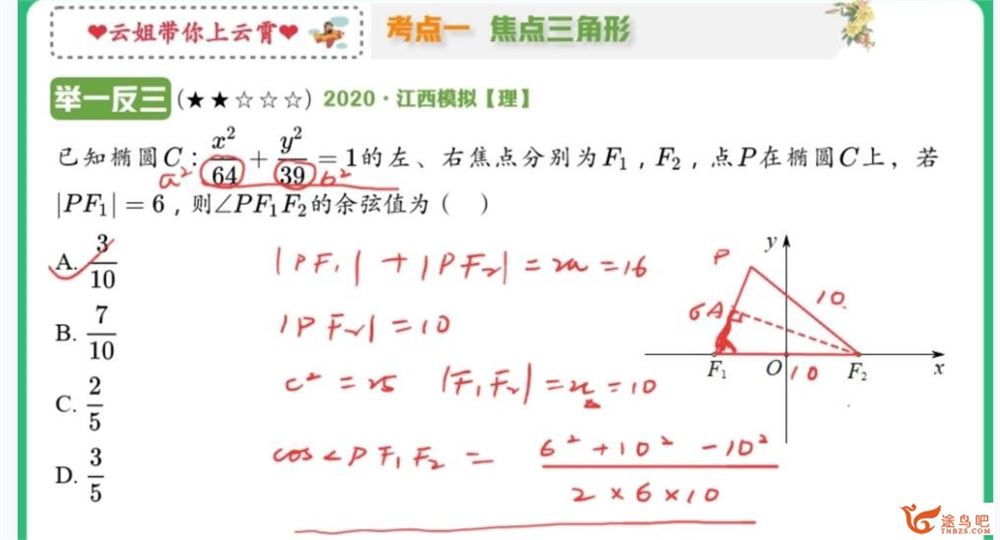 ❤云姐带你上云霄❤ 考点一 焦点三角形
举一反三 (★★☆☆☆) 2020·江西模拟【理】
已知椭圆C: x²/64 + y²/39 = 1的左、右焦点分别为F₁, F₂, 点P在椭圆C上, 若
a² b²
|PF₁| = 6, 则∠PF₁F₂的余弦值为( )
A. 3/10
B. 7/10
C. 2/5
D. 3/5
|PF₁| + |PF₂| = 2a = 16
|PF₂| = 10
c² = 25 |F₁F₂| = 2c = 10
cos∠PF₁F₂ = (6² + 10² - 10²)/(2×6×10)
y
P
6 A 10
F₁ O 10 F₂ x
途鸟吧
TNBZS.COM